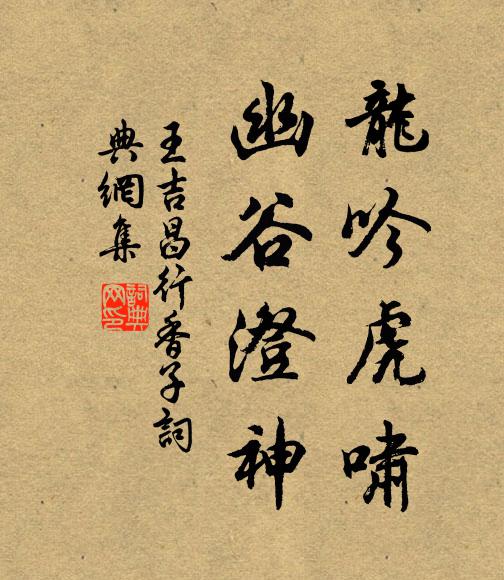 龍吟虎嘯
幽谷澄神
王吉昌行香子詞
典網集
詞典網印